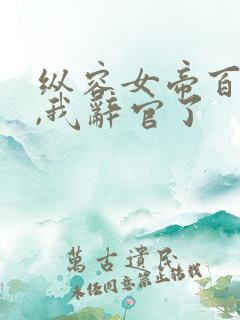 纵容女帝百
,我辞官了
萬古遺民
未经同意禁止转载